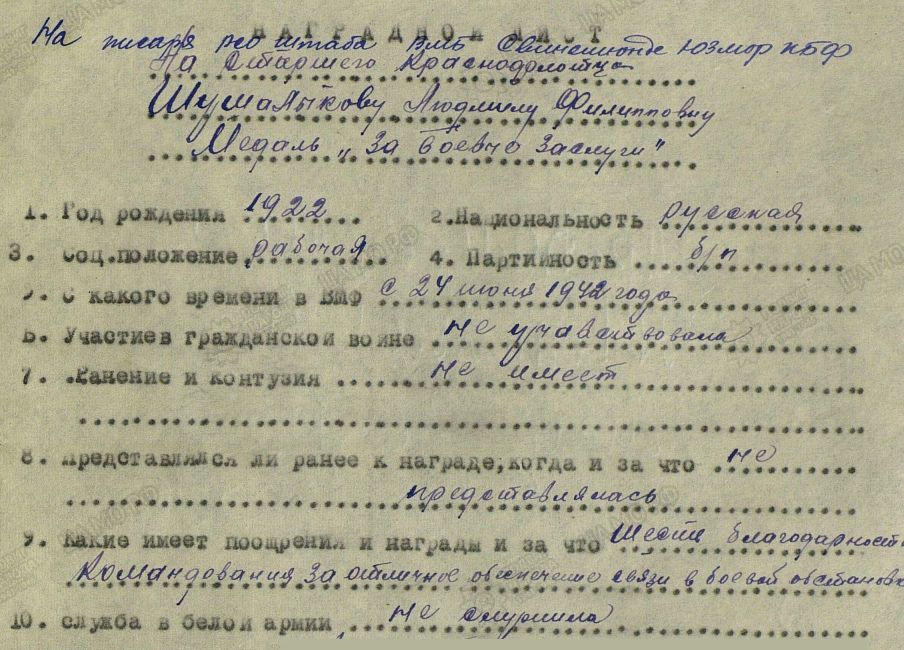 НАГРАДНОЙ ЛИСТ
На писаря РСО штаба ВМБ Свинемюнде ЮЗМОР КБФ
На Старшего Краснофлотца
Шумалыкову Людмилу Филипповну
Медаль „За боевые Заслуги"
1. Год рождения 1922 2. Национальность русская
3. Соц.положение рабочая 4. Партийность б/п
5. С какого времени в ВМФ с 24 июня 1942 года
6. Участие в гражданской войне не учавствовала
7. Ранение и контузия не имеет
8. Представлялся ли ранее к награде, когда и за что не
представлялась
9. Какие имеет поощрения и награды и за что Шесть благодарност
Командования за отличное обеспечение связи в боевой обстановк
10. служба в белой армии не служила